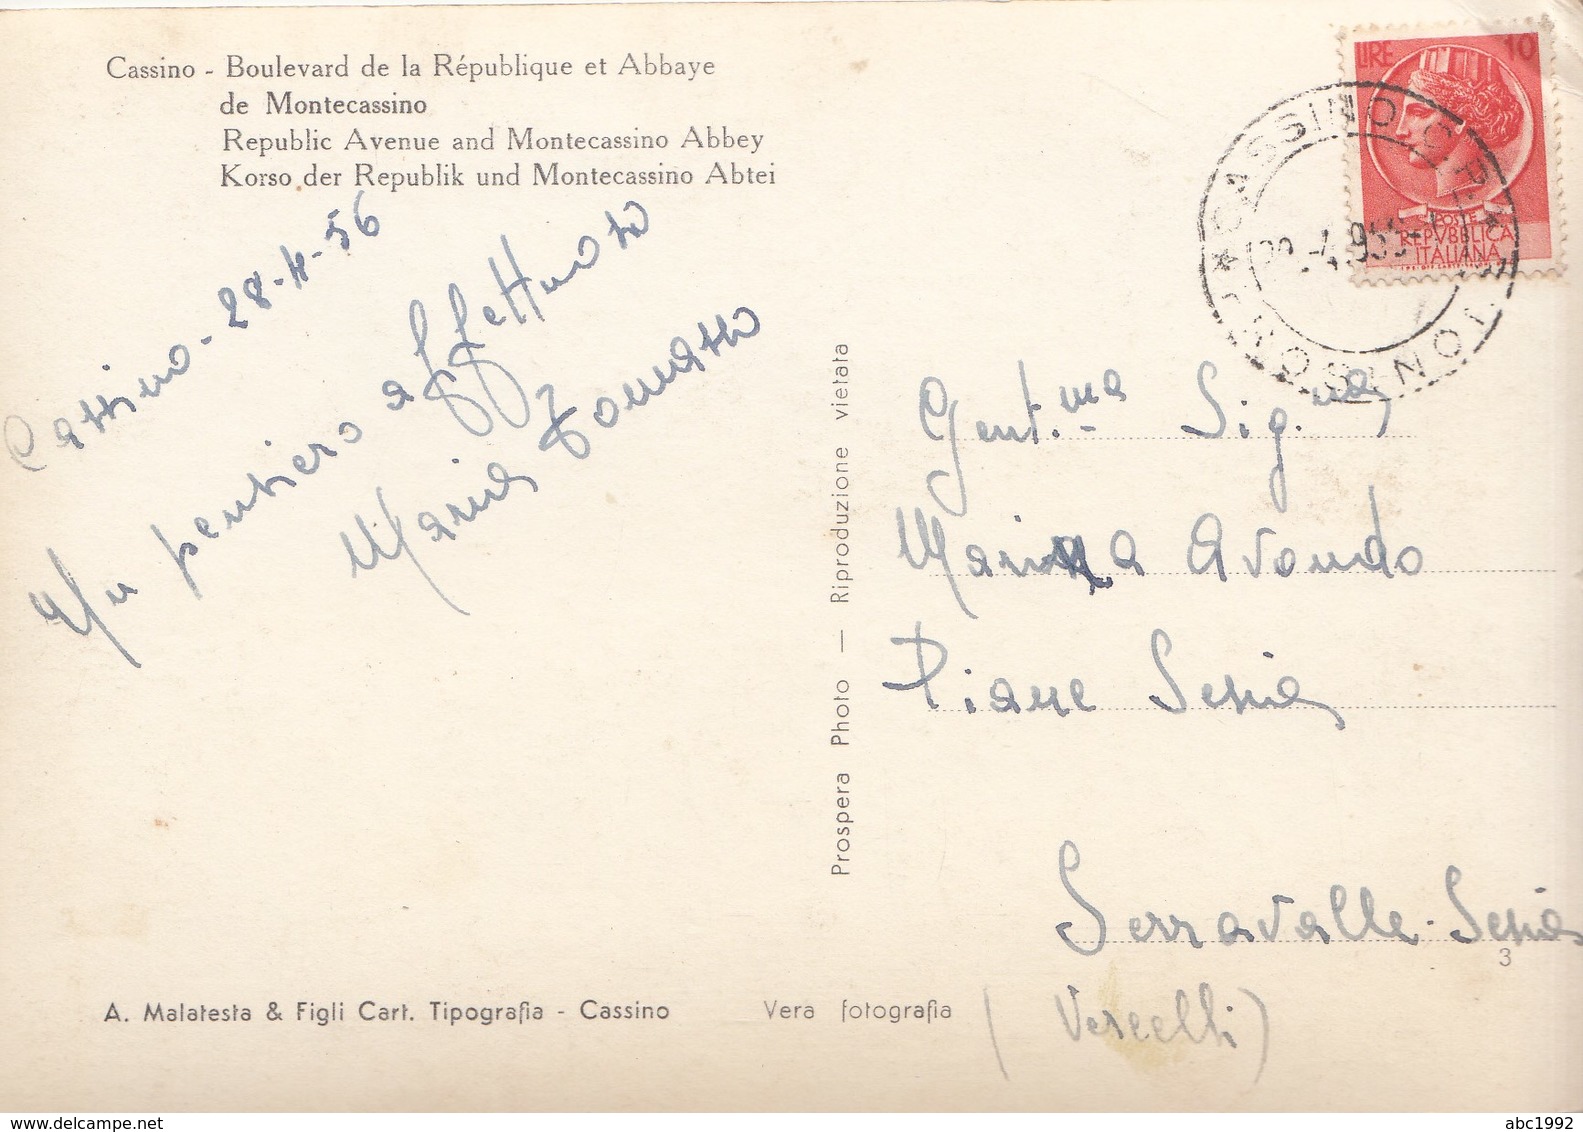 Cassino - Boulevard de la République et Abbaye
de Montecassino
Republic Avenue and Montecassino Abbey
Korso der Republik und Montecassino Abtei
Cassino - 28-4-56
Un pensiero affettuoso
Maria Tomasso
LIRE 10
POSTE
REPVBBLICA
ITALIANA
CASSINO
Prospera Photo — Riproduzione vietata
Gent.ma Sig.na
Marina Avondo
Piane Sesia
Serravalle-Sesia
3
(Vercelli)
A. Malatesta & Figli Cart. Tipografia - Cassino
Vera fotografia
abc1992